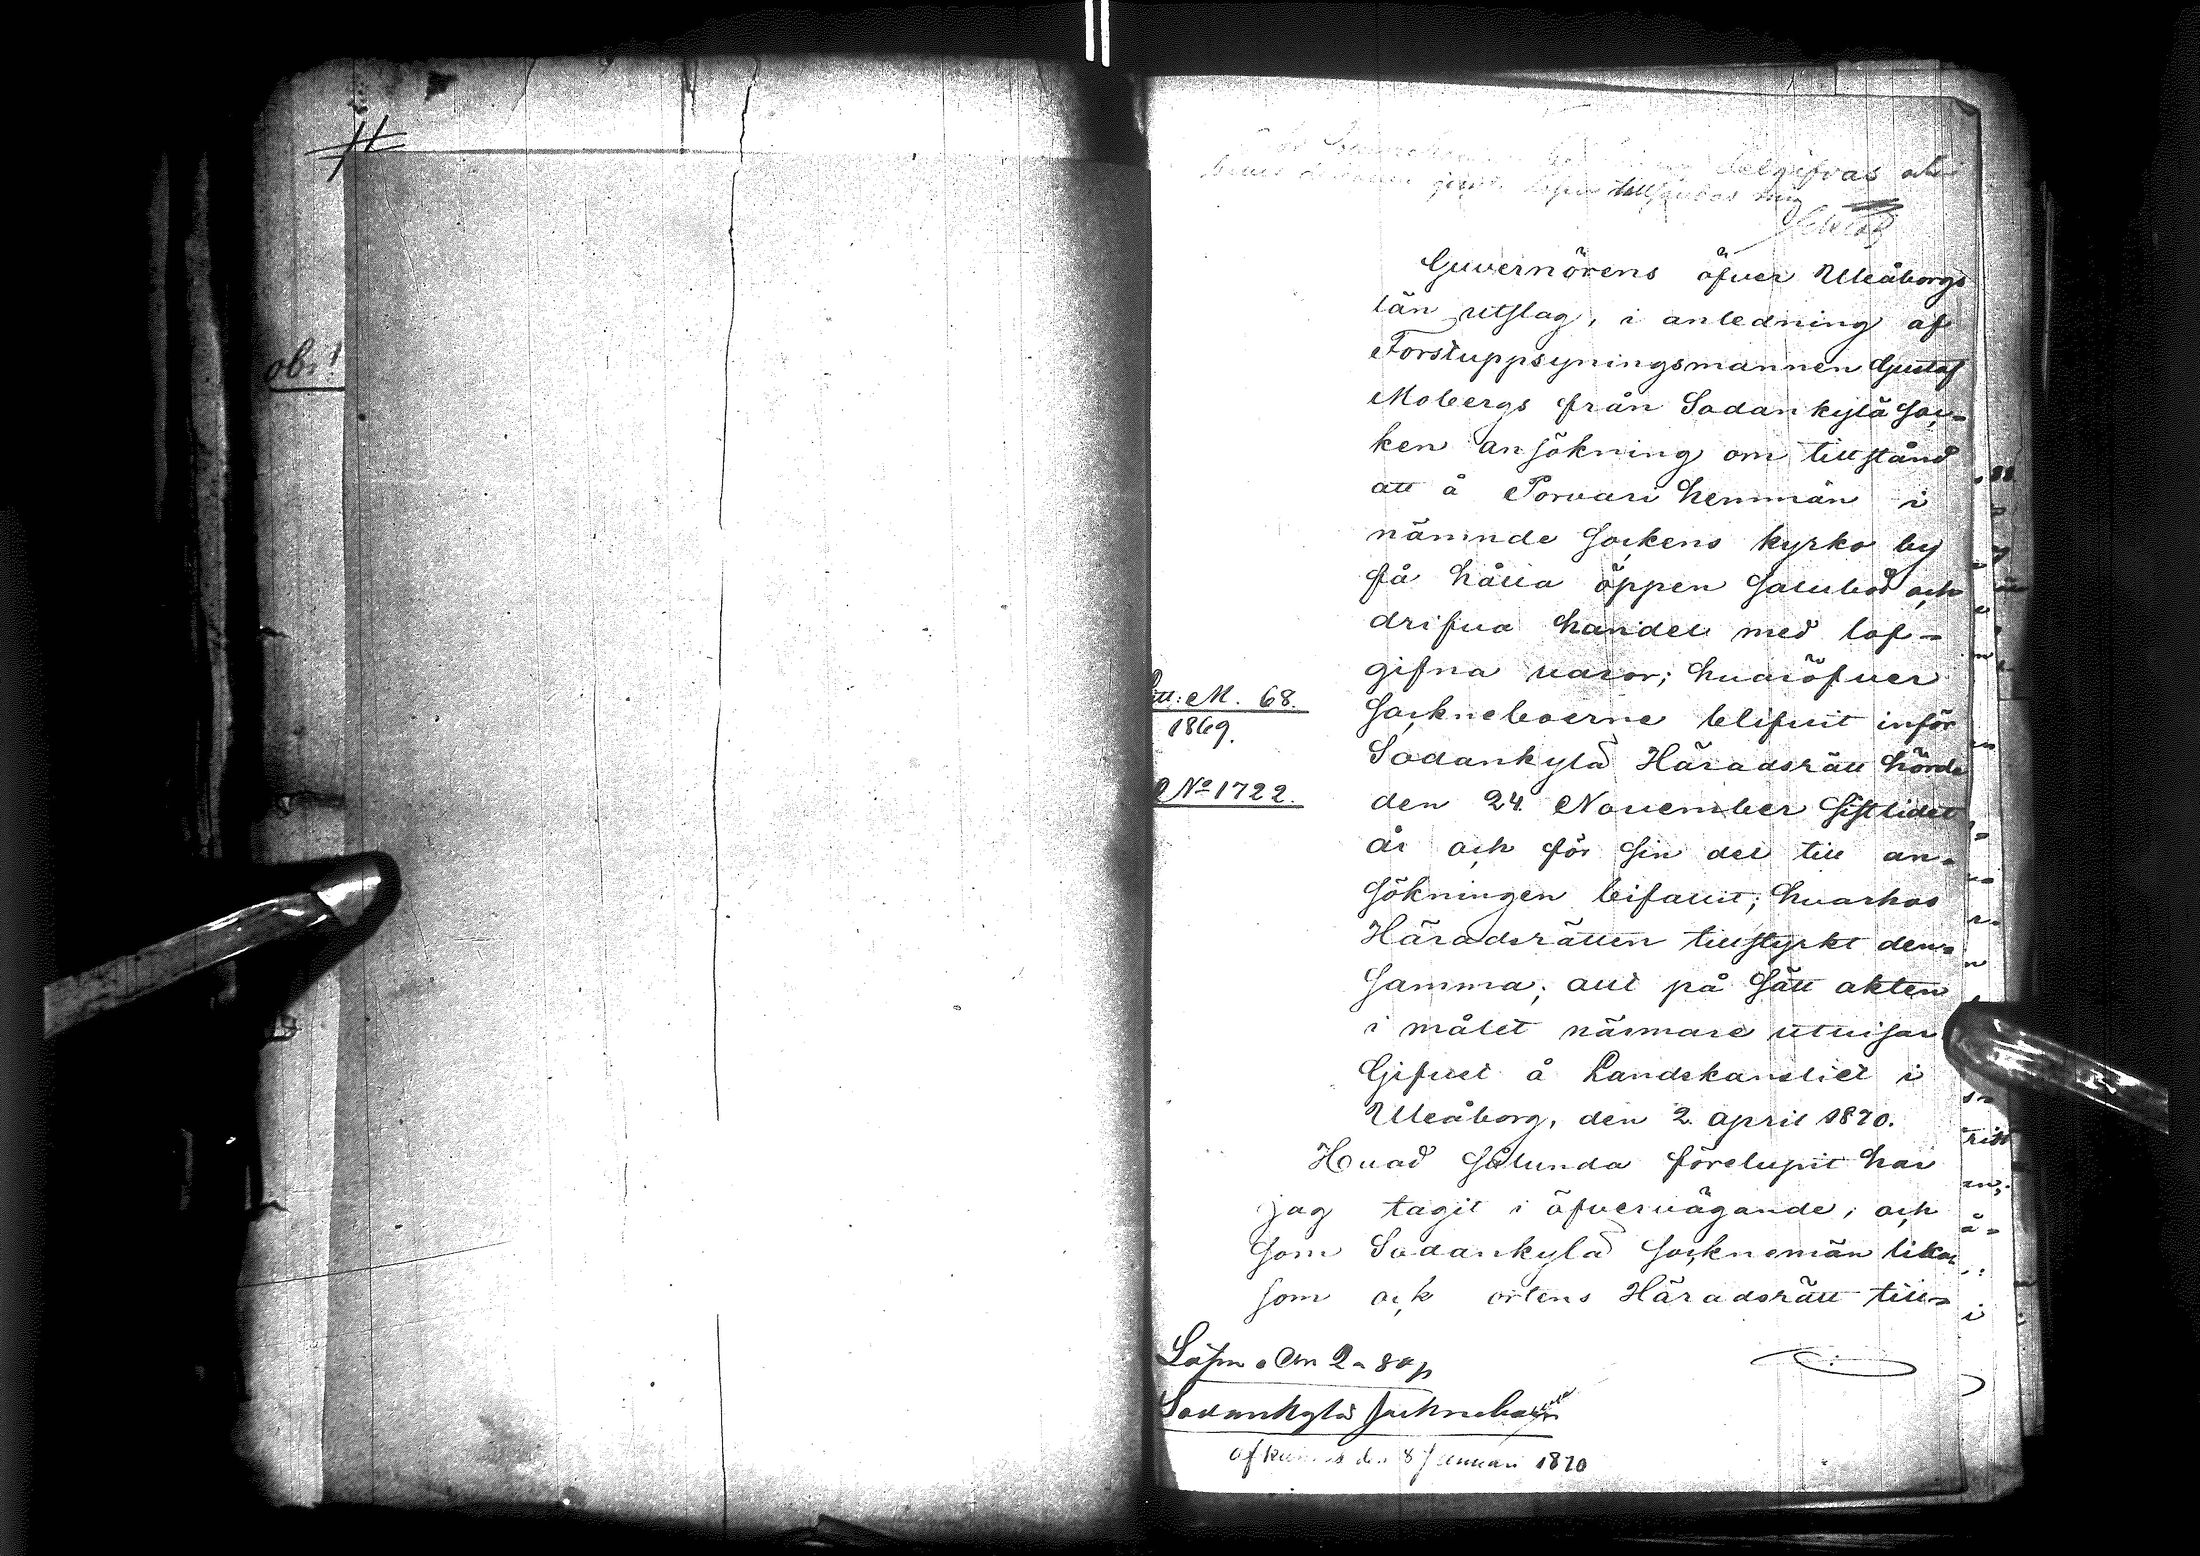 obs!
delgifvas
tillställas
Guvernörens öfver Uleåborgs
län utslag, i anledning af
Forstuppsyningsmannen Gustaf
Mobergs från Sodankylä soc-
ken ansökning om tillstånd
att å Porvari hemman i
nämnde sockens kyrko by
få hålla öppen salubod och
drifva handel med lof-
gifna varor; hvaröfver
Litt: M. 68.
1869.
sockneboerne blifvit inför
Sodankylä Häradsrätt hörde
No 1722.
den 24 November sistlidet
år och för sin del till an-
sökningen bifallit; hvarhos
Häradsrätten tillstyrkt den-
samma; allt på sätt akten
i målet närmare utvisar.
Gifvet å Landskansliet i
Uleåborg, den 2 april 1870.
Hvad sålunda förelupit har
jag tagit i öfvervägande; och
som Sodankylä socknemän lika
som ock ortens Häradsrätt till-
Lösen
Sodankylä
den 8 Januari 1870